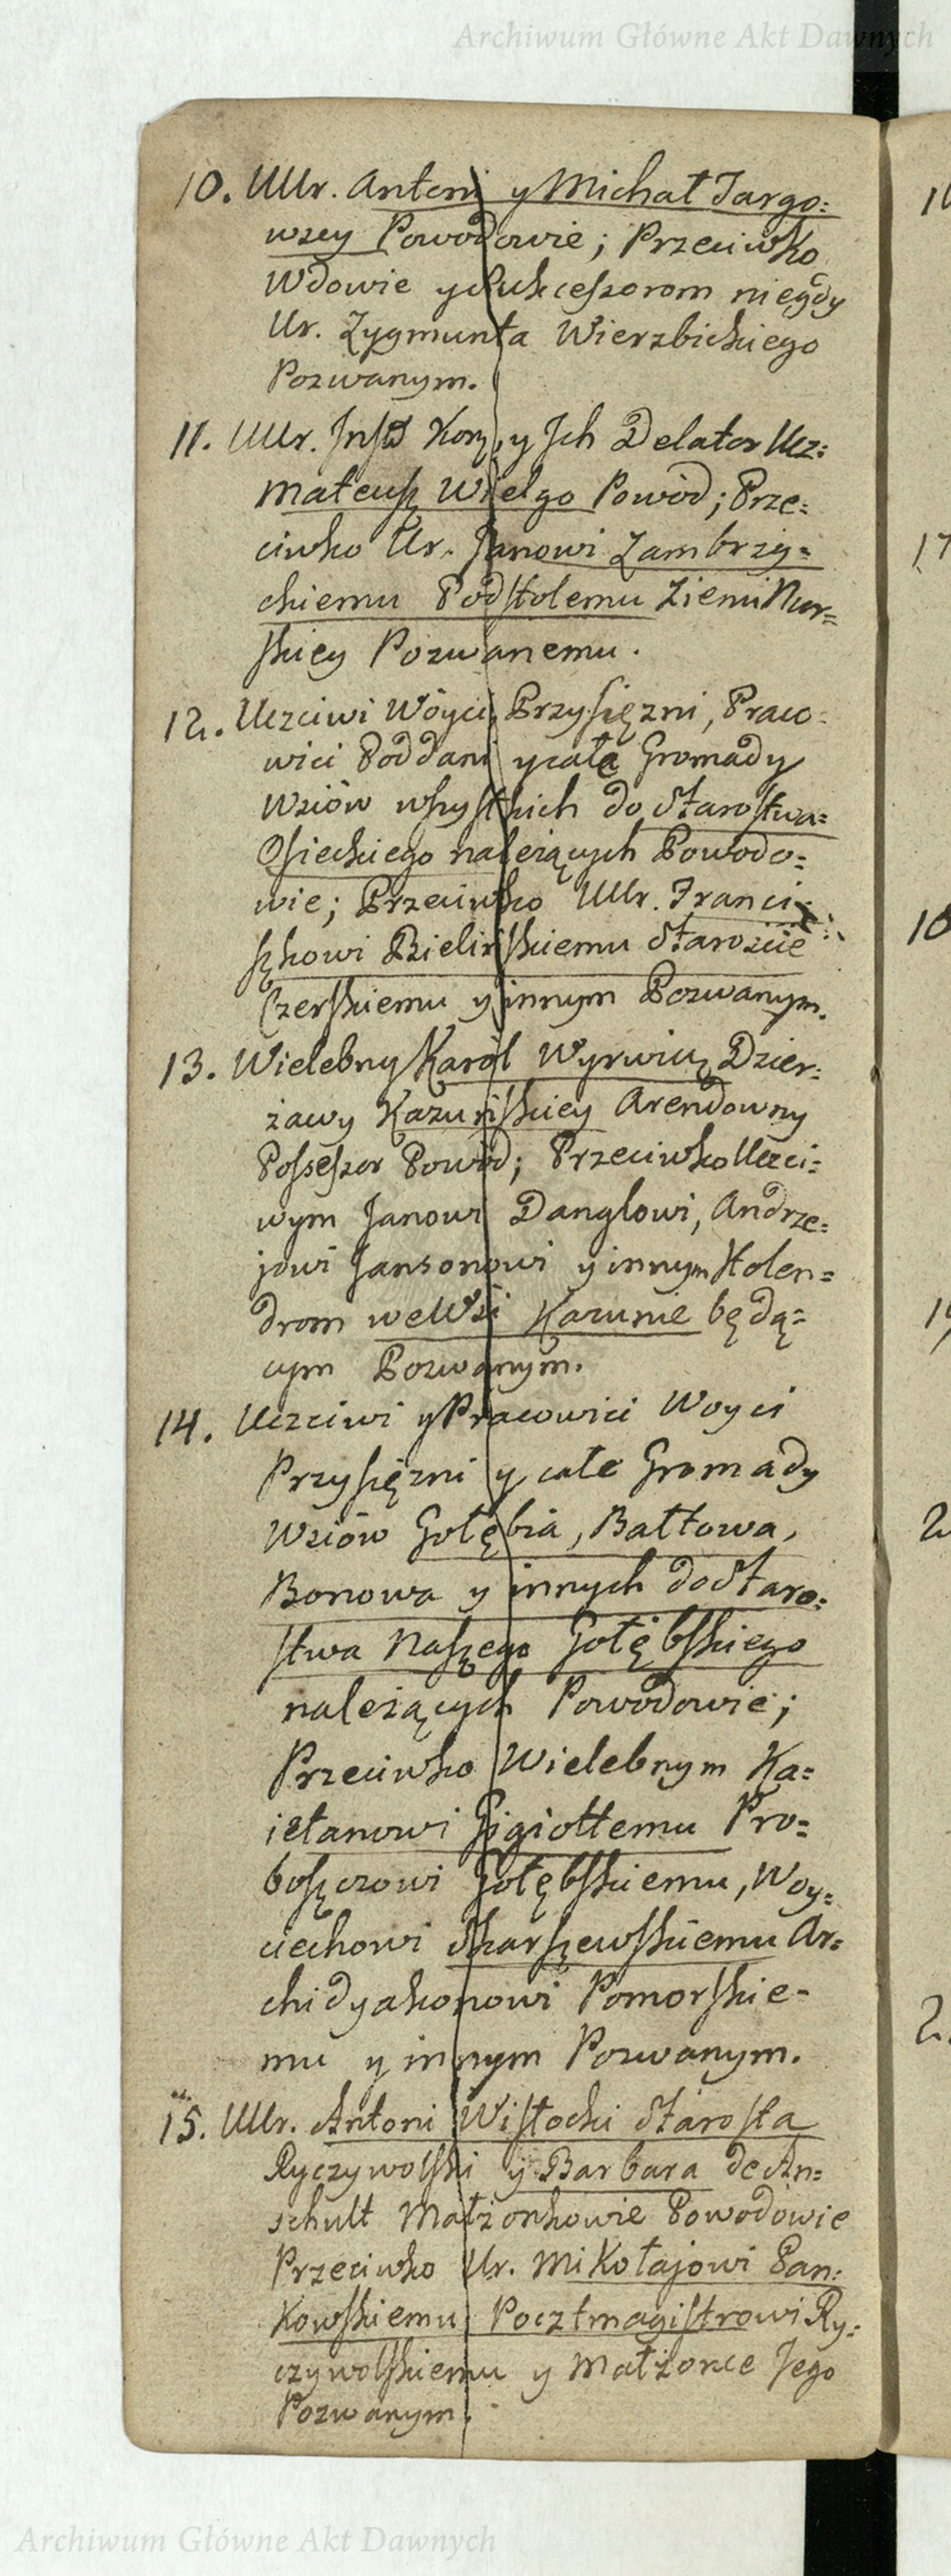 Archiwum Główne Akt Dawnych
10. UUr. Antoni y Michał Targo=
wscy Powodowie; Przeciwko
Wdowie y Sukcessorom niegdy
Ur. Zygmunta Wierzbickiego
Pozwanym.
11. UUr. Inst Kor, y Ich Delator Ucz:
Mateusz Wielgo Powód; Prze=
ciwko Ur. Janowi Zambrzy=
ckiemu Podstolemu Ziemi Nur=
skiey Pozwanemu.
12. Uczciwi Wóyci, Przysięzni, Praco=
wici Poddani y całe Gromady
Wsiów wszystkich do Starostwa=
Osieckiego naleiących Powodo=
wie; Przeciwko UUr. Franci=
szkowi Bielińskiemu Staroście
Czerskiemu y innym Pozwanym.
13. Wielebny Karól Wyrwicz Dzier=
żawy Kazuńskiey Arendowny
Possessor Powód; Przeciwko Uczci=
wym Janowi Danglowi, Andrze=
jowi Jansonowi y innym Holen=
drom we Wsi Kazunie będą=
cym Pozwanym.
14. Uczciwi y Pracowici Woyci
Przysięzni y całe Gromady
Wsiów Gołębia, Bałtowa,
Bonowa y innych do Staro=
stwa Naszego Gołębskiego
należących Powodowie;
Przeciwko Wielebnym Ka=
ietanowi Gigiottemu Pro=
boszczowi Gołębskiemu, Woy=
ciechowi Skarszewskiemu Ar=
chidyakonowi Pomorskie=
mu y innym Pozwanym.
15. UUr. Antoni Wisłocki Starosta
Ryczywolski y Barbara de An=
schult Małżonkowie Powodowie
Przeciwko Ur. Mikołajowi Pan=
kowskiemu Pocztmagistrowi Ry=
czywolskiemu y Małżonce Jego
Pozwanym.
Archiwum Główne Akt Dawnych